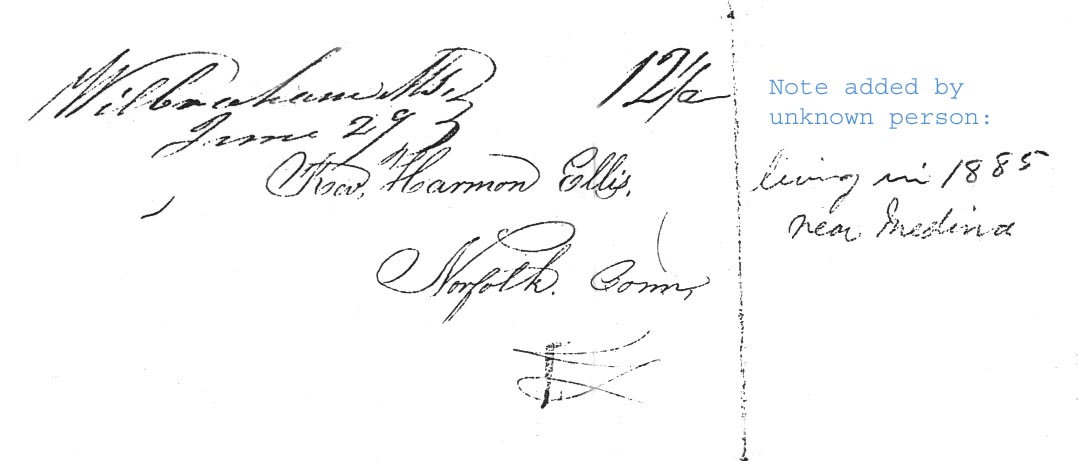 Wilbraham Ms. 12½
June 29
Rev. Harmon Ellis.
Norfolk. Conn,
Note added by
unknown person:
living in 1885
near Medina